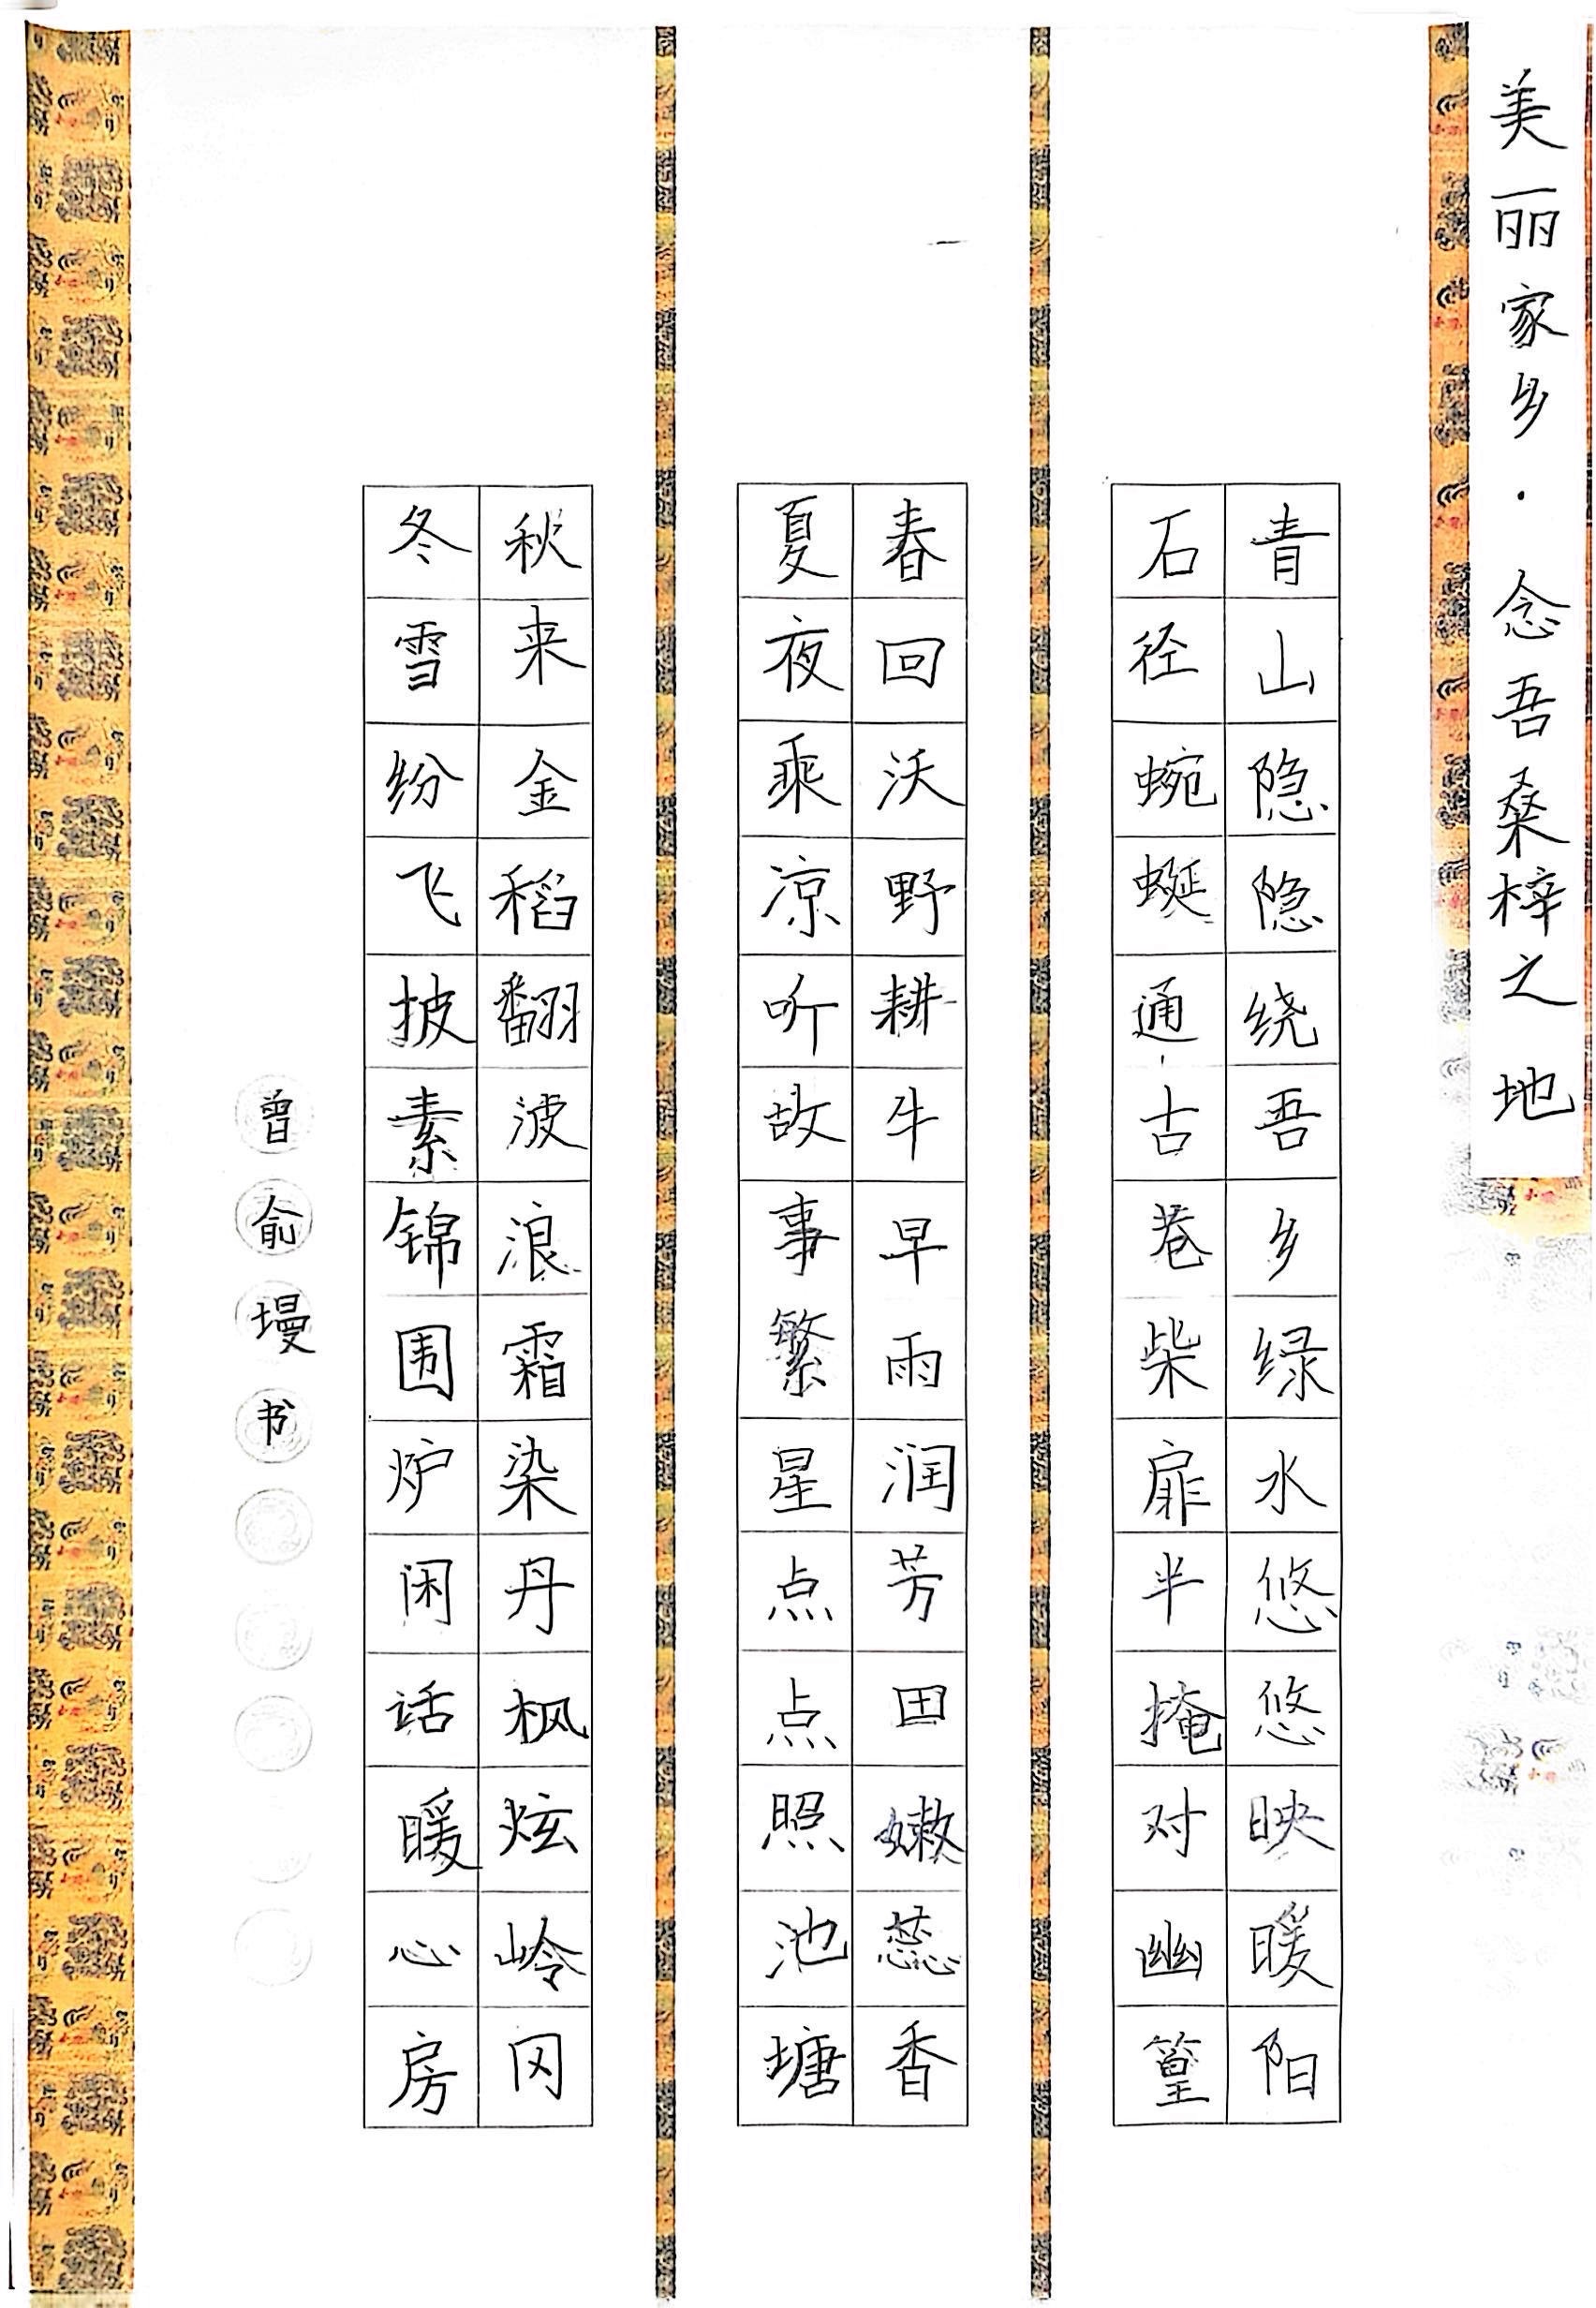 美丽家乡·念吾桑梓之地
青山隐隐绕吾乡绿水悠悠映暖阳
石径蜿蜒通古巷柴扉半掩对幽篁
春回沃野耕牛早雨润芳田嫩蕊香
夏夜乘凉听故事繁星点点照池塘
秋来金稻翻波浪霜染丹枫炫岭冈
冬雪纷飞披素锦围炉闲话暖心房
曾俞墁书